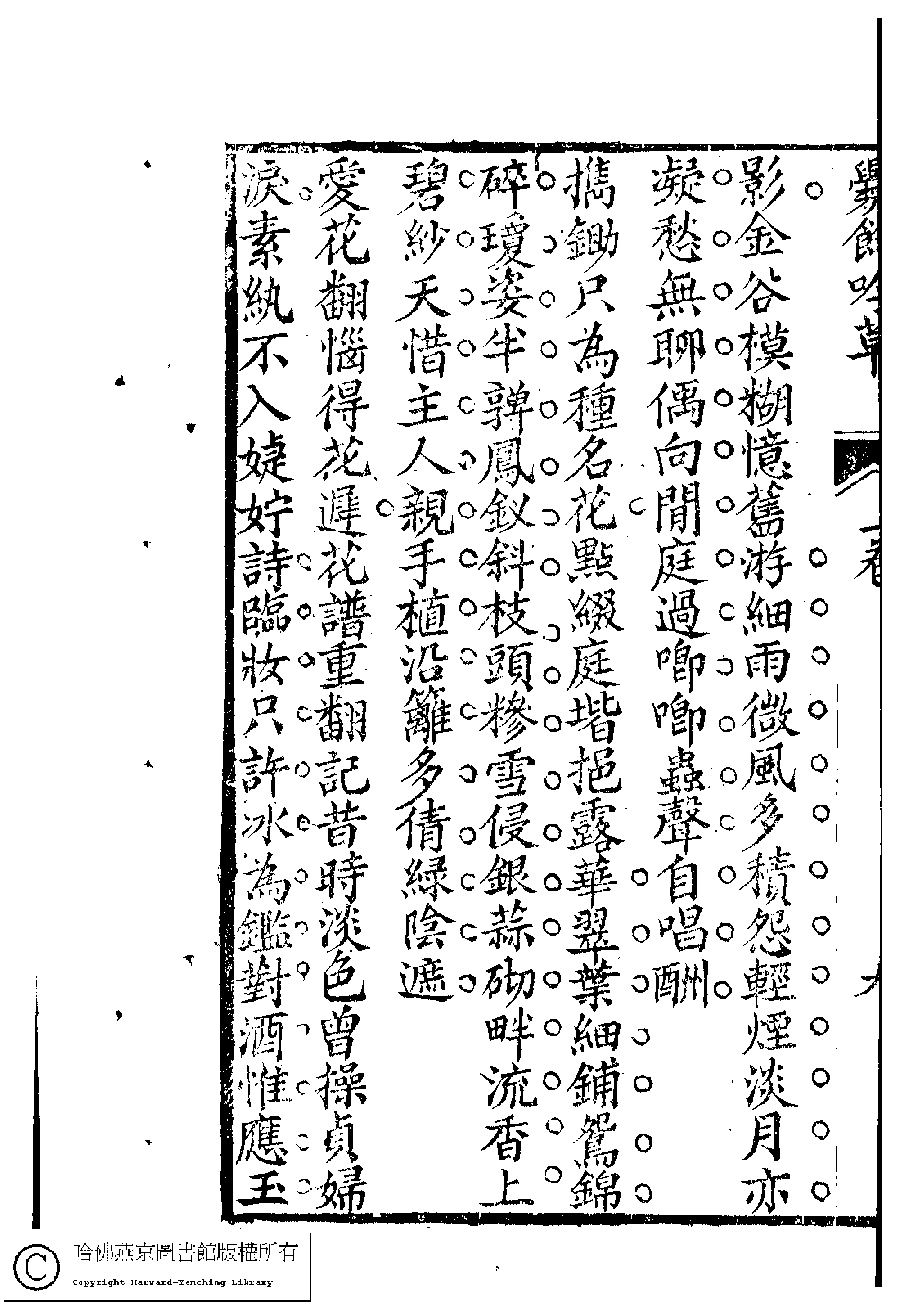 爨餘吟草
一卷
影金谷模糊憶舊游細雨微風多積怨輕煙淡月亦
凝愁無聊偶向閒庭過喞喞蟲聲自唱酬
擕鋤只為種名花點綴庭堦挹露華翠葉細鋪鴛錦
碎瓊姿半嚲鳳釵斜枝頭糝雪侵銀蒜砌畔流香上
碧紗天惜主人親手植沿籬多倩綠陰遮
愛花翻惱得花遲花譜重翻記昔時淡色曾操貞婦
淚素紈不入婕妤詩臨妝只許冰為鑑對酒惟應玉
哈佛燕京圖書館版權所有
Copyright Harvard-Yenching Library